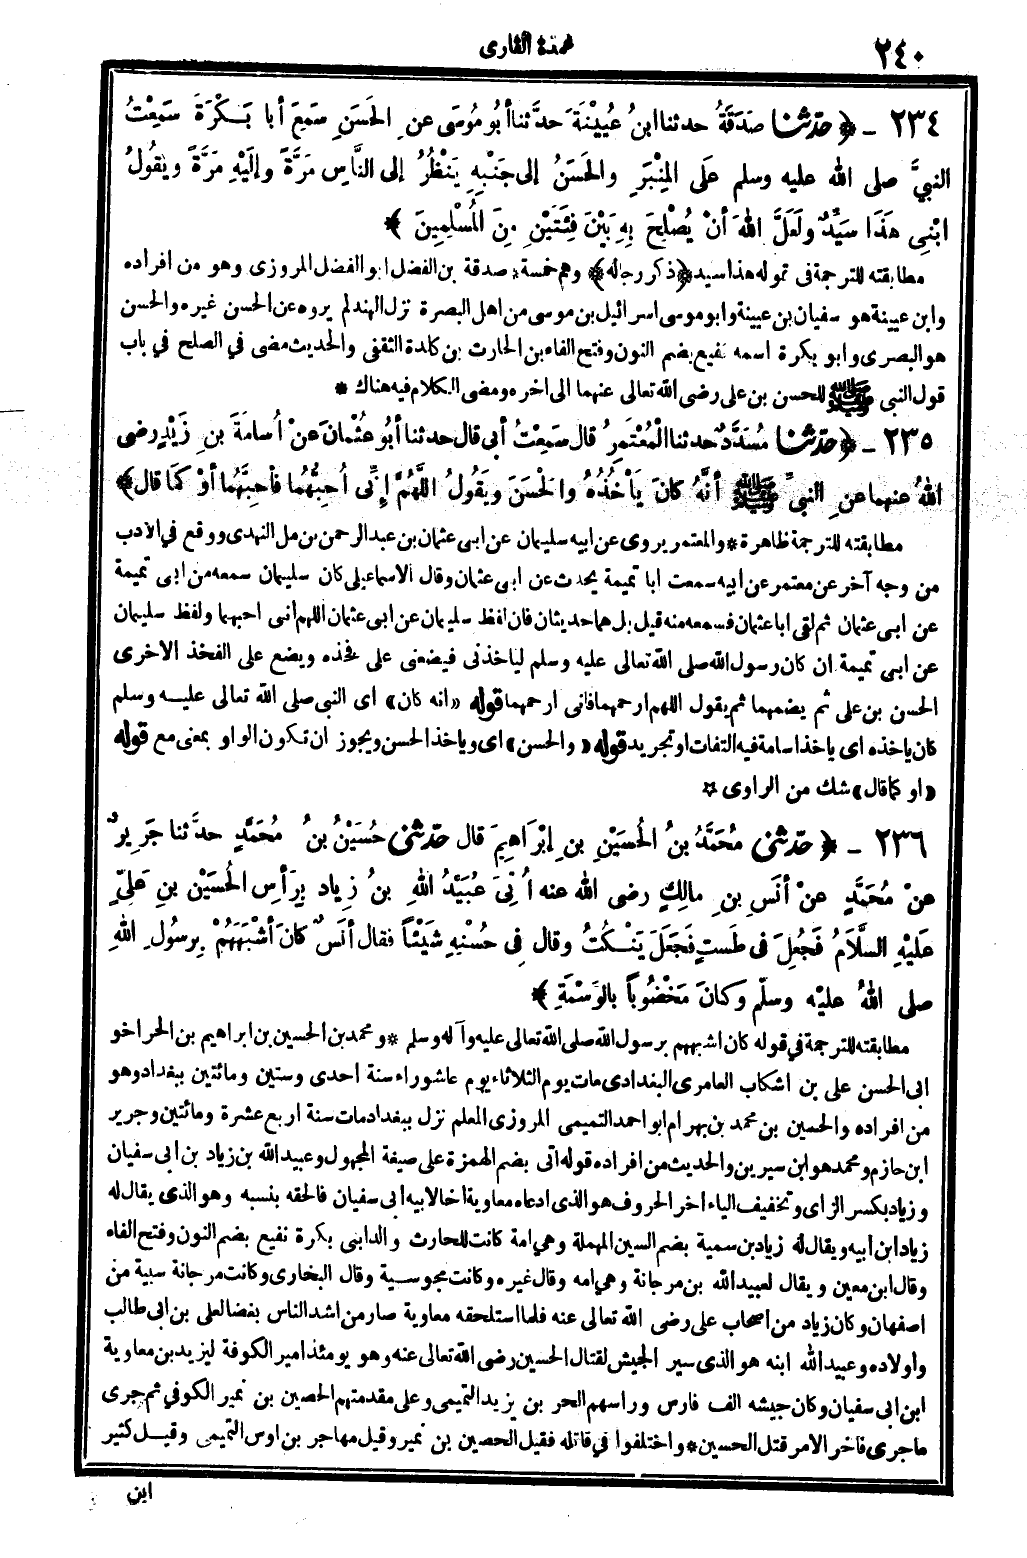 عمدة القارى
٢٤٠
٢٣٤ ـ ﴿حدثنا صَدَقَةُ حدثنا ابنُ عُيَيْنَةَ حدَّثنا أبُو مُوسَى عنِ الحَسَنِ سَمِعَ أبا بَكْرَةَ سَمِعْتُ
النبيَّ صلى الله عليه وسلم عَلَى المِنْبَرِ والحَسَنُ إلى جَنْبِهِ يَنْظُرُ إلى النَّاسِ مَرَّةً وإلَيْهِ مَرَّةً ويقُولُ
ابْنِى هَذَا سَيِّدٌ ولَعَلَّ اللهَ أنْ يُصْلِحَ بِهِ بَيْنَ فِئَتَيْنِ مِنَ المُسْلِمِينَ﴾
مطابقته للترجمة فى قوله هذا سيد ﴿ذكر رجاله﴾ وهم خمسة * صدقة بن الفضل ابو الفضل المروزى وهو من افراده
وابن عيينة هو سفيان بن عيينة وابو موسى اسرائيل بن موسى من اهل البصرة نزل الهند لم يروه عن الحسن غيره والحسن
هو البصرى وابو بكرة اسمه نفيع بضم النون وفتح الفاء بن الحارث بن كلدة الثقفى والحديث مضى في الصلح في باب
قول النبي ﷺ للحسن بن على رضى الله تعالى عنهما الى اخره ومضى الكلام فيه هناك *
٢٣٥ ـ ﴿حدثنا مُسَدَّدٌ حدثنا المُعْتَمِرُ قال سَمِعْتُ أبى قال حدثنا أبُو عُثْمانَ عنْ أُسامَةَ بنِ زَيْدٍ رضى
اللهُ عنهما عنِ النبيِّ ﷺ أنَّهُ كانَ يَأْخُذُهُ والحَسَنَ ويَقُولُ اللَّهُمَّ إنِّى أُحِبُّهُما فَأحِبَّهُما أوْ كَمَا قال﴾
مطابقته للترجمة ظاهرة * والمعتمر يروى عن ابيه سليمان عن ابى عثمان بن عبد الرحمن بن مل النهدى ووقع في الادب
من وجه آخر عن معتمر عن ابيه سمعت ابا تميمة يحدث عن ابى عثمان وقال الاسماعيلى كان سليمان سمعه من ابى تميمة
عن ابى عثمان ثم لقى ابا عثمان فسمعه منه قيل بل هما حديثان فان لفظ سليمان عن ابى عثمان اللهم انى احبهما ولفظ سليمان
عن ابى تميمة ان كان رسول الله صلى الله تعالى عليه وسلم لياخذنى فيضعنى على فخذه ويضع على الفخذ الاخرى
الحسن بن على ثم يضمهما ثم يقول اللهم ارحمهما فانى ارحمهما قوله «انه كان» اى النبي صلى الله تعالى عليه وسلم
كان ياخذه اى ياخذ اسامة فيه التفات او تجريد قوله «والحسن» اى وياخذ الحسن ويجوز ان تكون الواو بمعنى مع قوله
«او كما قال» شك من الراوى *
٢٣٦ ـ ﴿حدثنى مُحَمَّدُ بنُ الحُسَيْنِ بنِ إبْرَاهِيمَ قال حدثنى حُسَيْنُ بنُ مُحَمَّدٍ حدثنا جَرِيرٌ
عنْ مُحَمَّدٍ عنْ أنَسِ بنِ مالِكٍ رضى الله عنه أُتِىَ عُبَيْدُ اللهِ بنُ زِيادٍ بِرَأسِ الحُسَيْنِ بنِ عَلِيٍّ
عَلَيْهِ السَّلَامُ فَجُعِلَ فى طَستٍ فَجَعَلَ يَنْكُتُ وقال فِى حُسْنِهِ شَيْئاً فقال أنَسٌ كانَ أشْبَهَهُمْ بِرسُولِ اللهِ
صلى اللهُ عليْه وسلّم وكانَ مَخْضُوباً بالوَسْمَةِ﴾
مطابقته للترجمة في قوله كان اشبههم برسول الله صلى الله تعالى عليه وآله وسلم * ومحمد بن الحسين بن ابراهيم بن الحر اخو
ابى الحسن على بن اشكاب العامرى البغدادى مات يوم الثلاثاء يوم عاشوراء سنة احدى وستين ومائتين ببغداد وهو
من افراده والحسين بن محمد بن بهرام ابو احمد التميمى المروزى المعلم نزل ببغداد مات سنة اربع عشرة ومائتين وجرير
ابن حازم ومحمد هو ابن سيرين والحديث من افراده قوله اتى بضم الهمزة على صيغة المجهول وعبيد الله بن زياد بن ابى سفيان
وزياد بكسر الزاى وتخفيف الياء اخر الحروف هو الذى ادعاه معاوية اخا لابيه ابى سفيان فالحقه بنسبه وهو الذى يقال له
زياد ابن ابيه ويقال له زياد بن سمية بضم السين المهملة وهي امة كانت للحارث والد ابى بكرة نفيع بضم النون وفتح الفاء
وقال ابن معين ويقال لعبيد الله بن مرجانة وهي امه وقال غيره وكانت مجوسية وقال البخارى وكانت مرجانة سبية من
اصفهان وكان زياد من اصحاب على رضى الله تعالى عنه فلما استلحقه معاوية صار من اشد الناس بغضا لعلى بن ابى طالب
واولاده وعبيد الله ابنه هو الذى سير الجيش لقتال الحسين رضى الله تعالى عنه وهو يومئذ امير الكوفة ليزيد بن معاوية
ابن ابى سفيان وكان جيشه الف فارس وراسهم الحر بن يزيد التميمى وعلى مقدمتهم الحصين بن نمير الكوفي ثم جرى
ماجرى فاخر الامر قتل الحسين * واختلفوا في قاتله فقيل الحصين بن نمير وقيل مهاجر بن اوس التميمى وقيل كثير
ابن